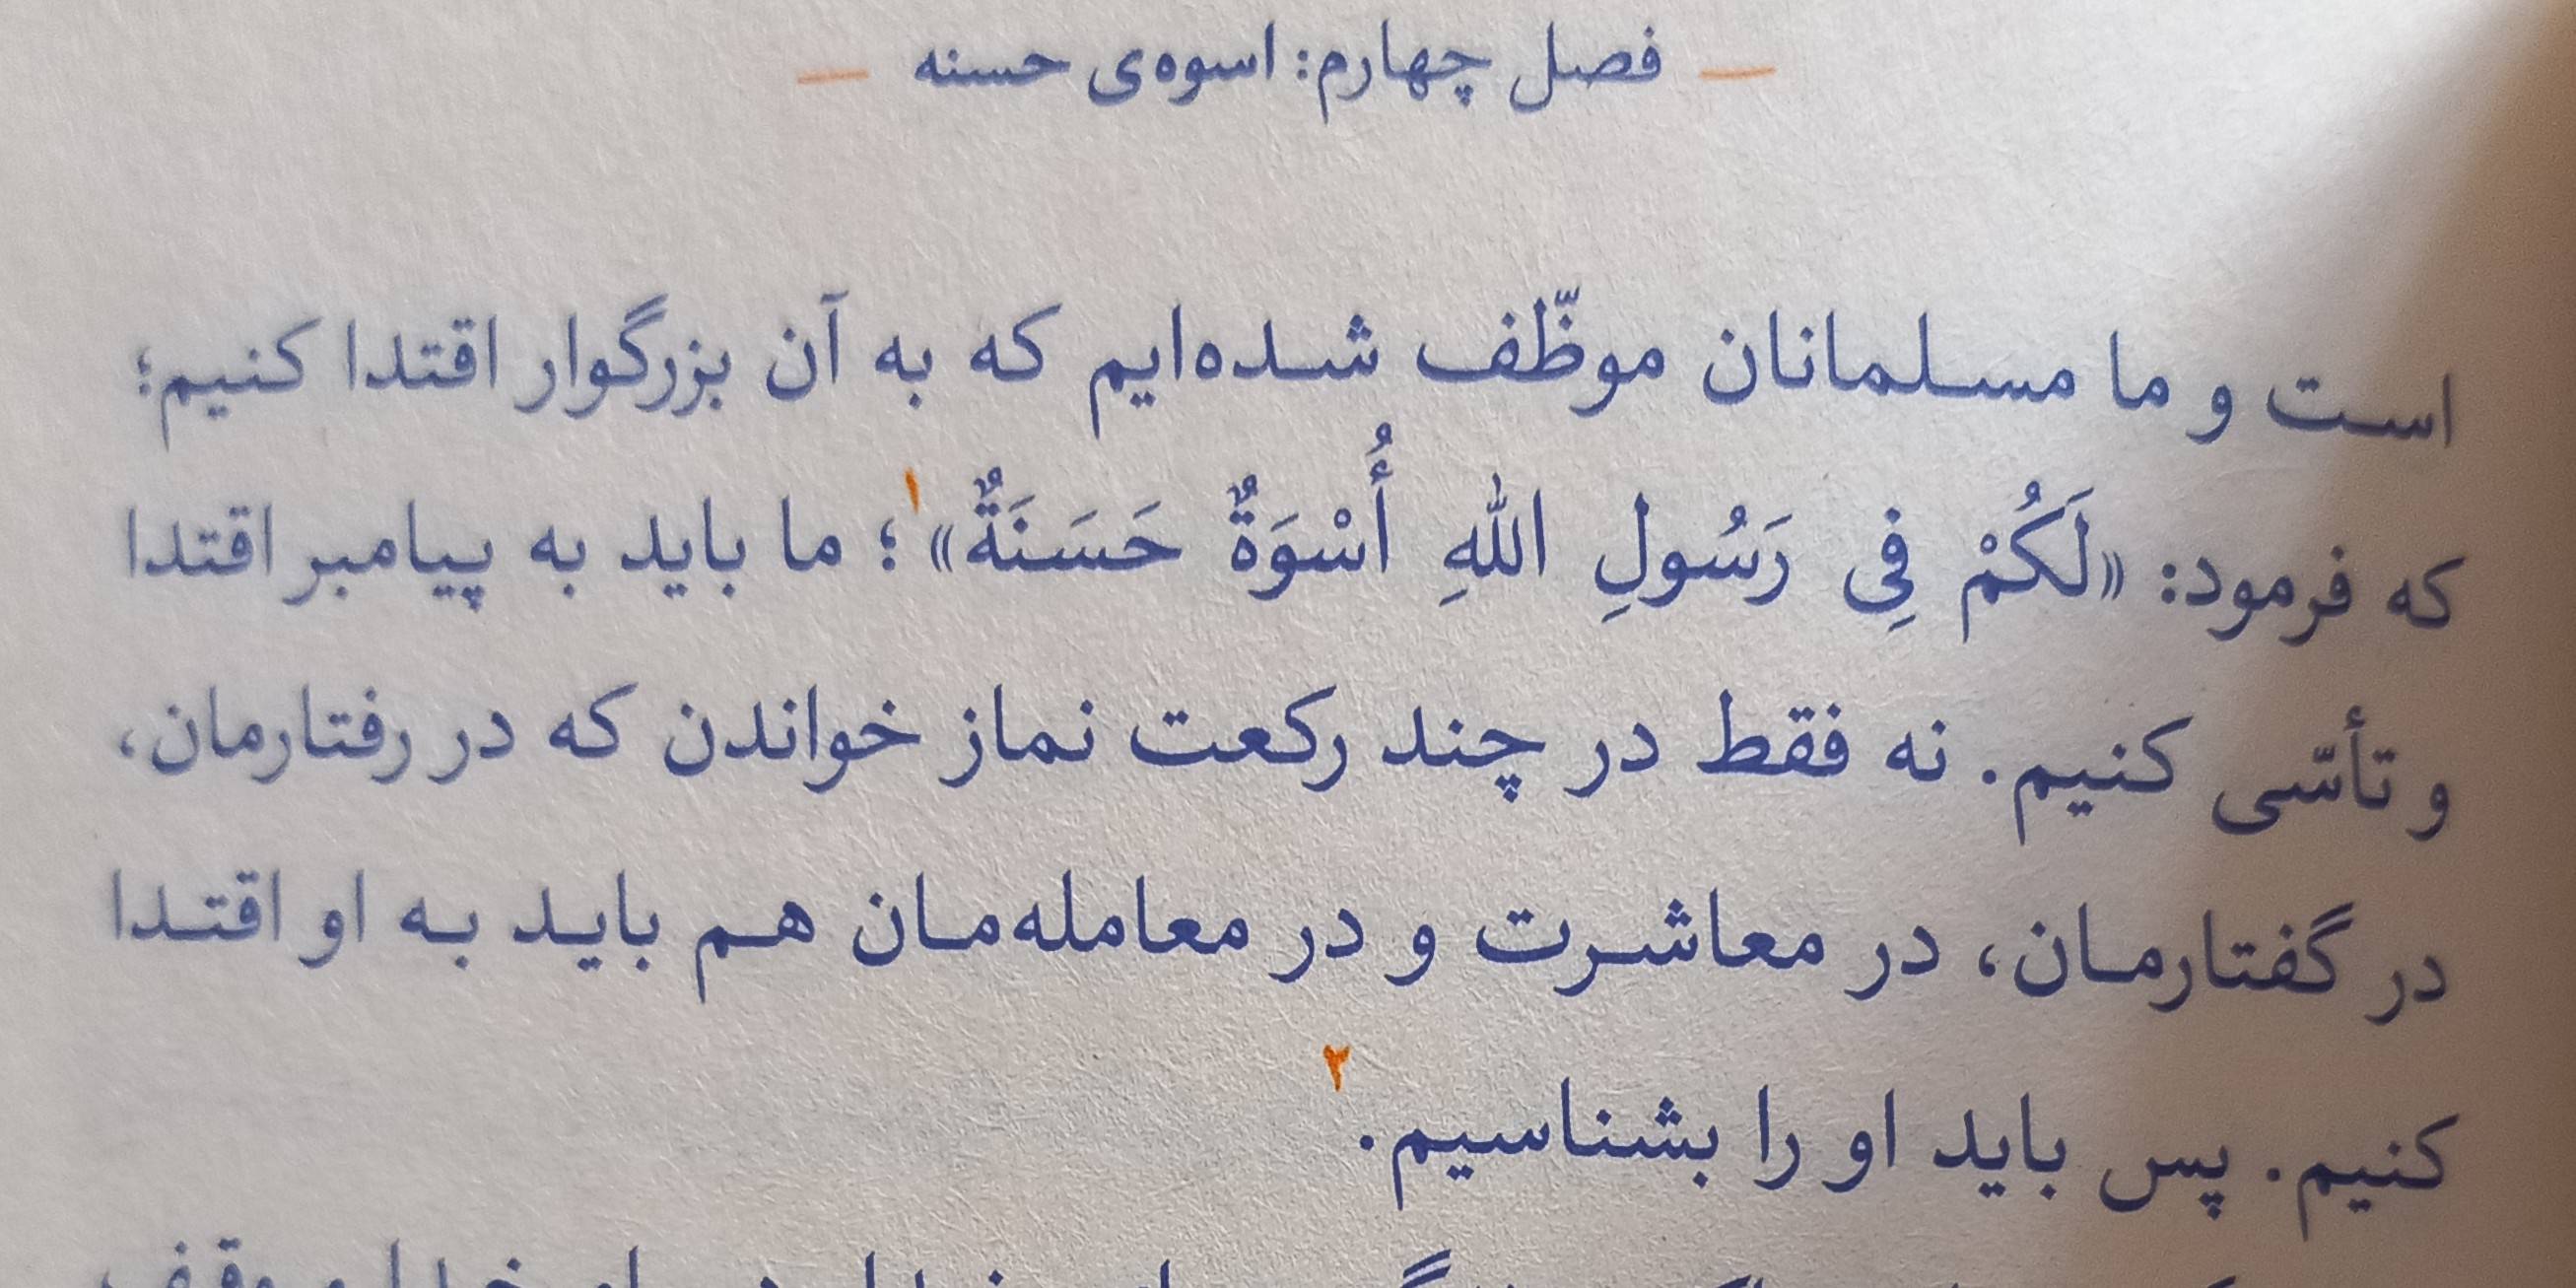 — فصل چهارم: اسوه‌ی حسنه —
است و ما مسلمانان موظّف شده‌ایم که به آن بزرگوار اقتدا کنیم؛
که فرمود: «لَکُمْ فِی رَسُولِ اللهِ أُسْوَةٌ حَسَنَةٌ»۱؛ ما باید به پیامبر اقتدا
و تأسّی کنیم. نه فقط در چند رکعت نماز خواندن که در رفتارمان،
در گفتارمان، در معاشرت و در معامله‌مان هم باید به او اقتدا
کنیم. پس باید او را بشناسیم.۲